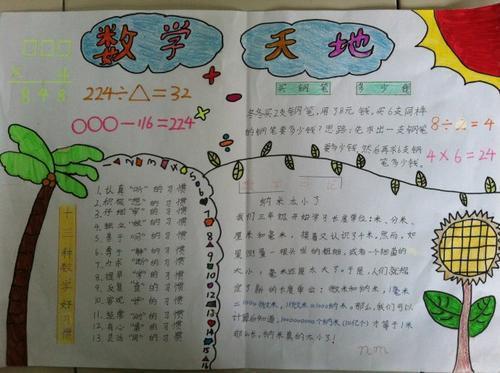 数学 天地
□□□
8 4 8
224÷△=32
○○○-116=224
买钢笔 多少钱
冬冬买2支钢笔,用了8元钱,买6支同样
的钢笔要多少钱?思路:先求出一支钢笔
要多少钱,然后再求6支钢
笔多少钱.
8÷2=4
4×6=24
十三种数学好习惯
1.认真"听"的习惯
2.积极"想"的习惯
3.仔细"审"的习惯
4.独立"做"的习惯
5.善于"问"的习惯
6.勇于"辩"的习惯
7.力求"断"的习惯
8.提早"学"的习惯
9.反复"查"的习惯
10.客观"评"的习惯
11.经常"动"的习惯
12.有心"集"的习惯
13.灵活"用"的习惯
1 2 3 4 5 6 7 8 9 10 11 12 13 14 15 16
数学日记
纳米太小了
我们三年级开始学习长度单位:米、分米、
厘米和毫米,接着又认识了千米,然而,如
果测量一根头发的粗细,或者一个细菌的
大小,毫米还是太大了。于是,人们就规
定了新的长度单位:微米和纳米,1毫米
=1000微米,1微米=1000纳米。那么,我们可以
计算而知道,1000000000个纳米(10亿个)才等于1米
那么长,纳米真的太小了!
nm